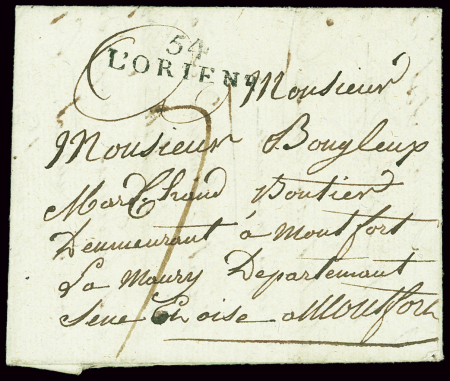 54
L'ORIENT
Monsieur
Monsieur Bougleux
Marchand
Demeurant à Montfort
La Maury Departemant
Sene Et oise a Montfort